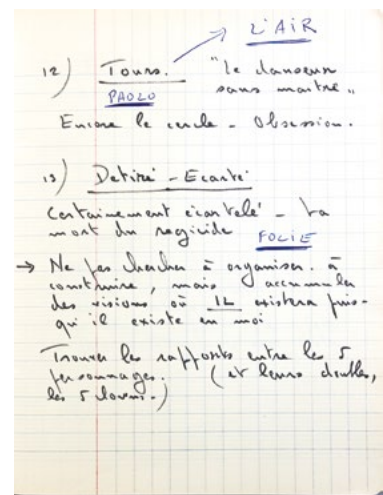 L'AIR
12) Tours. "le danseur
PAOLO sans maître"
Encore le cercle - Obsession.
13) Détiré - Ecarté
Certainement écartelé - La
mort du régicide
FOLIE
→ Ne pas chercher à organiser. à
construire, mais accumuler
des visions où IL existera puis-
qu'il existe en moi
Trouver les rapports entre les 5
personnages. (et leurs doubles,
les 5 )